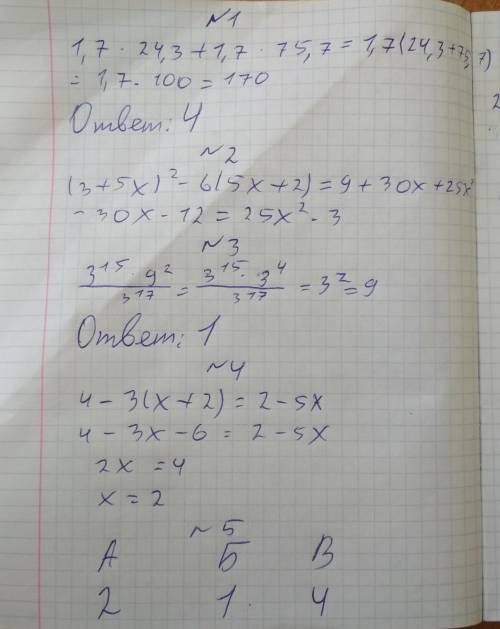 №1
1,7 · 24,3 + 1,7 · 75,7 = 1,7(24,3+75,7)
= 1,7 · 100 = 170
Ответ: 4
№2
(3+5x)² - 6(5x+2) = 9 + 30x + 25x²
- 30x - 12 = 25x² - 3
№3
3¹⁵ · 9² / 3¹⁷ = 3¹⁵ · 3⁴ / 3¹⁷ = 3² = 9
Ответ: 1
№4
4 - 3(x+2) = 2 - 5x
4 - 3x - 6 = 2 - 5x
2x = 4
x = 2
№5
А Б В
2 1 4
2